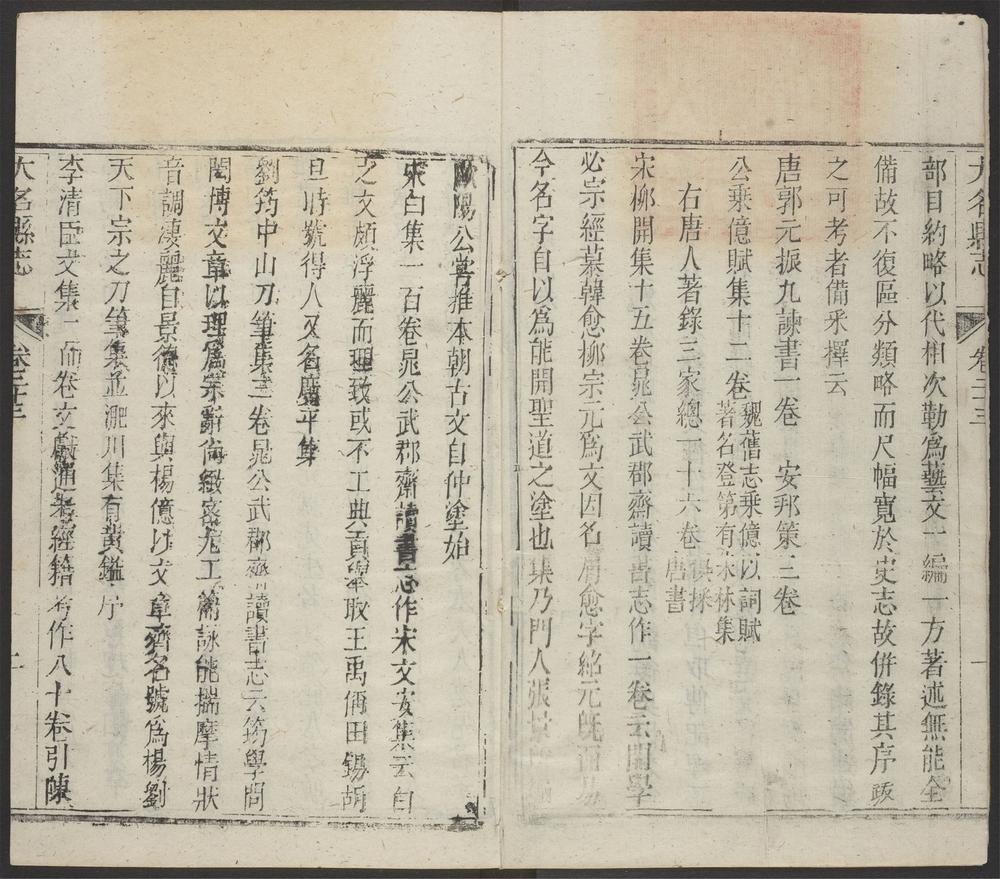 大名縣志 卷二十三 一
部目約略以代相次勒爲藝文一編一方著述無能全
備故不復區分類略而尺幅寬於史志故併錄其序跋
之可考者備釆擇云
唐郭元振九諫書一卷 安邦策三卷
公乘億賦集十二卷 魏舊志乘億以詞賦
著名登第有珠林集
右唐人著錄三家總一十六卷 俱採
唐書
宋柳開集十五卷晁公武郡齋讀書志作一卷云開學
必宗經慕韓愈柳宗元爲文因名肩愈字紹元旣而易
今名字自以爲能開聖道之塗也集乃門人張景
歐陽公嘗推本朝古文自仲塗始
宋白集一百卷晁公武郡齋讀書志作宋文安集云白
之文頗浮麗而理致或不工典貢舉取王禹偁田錫胡
旦時號得人又名廣平集
劉筠中山刀筆集三卷晁公武郡齋讀書志云筠學問
閎博文章以理爲宗辭尚緻密尤工篇詠能揣摩情狀
音調淒麗自景德以來與楊億以文章齊名號爲楊劉
天下宗之刀筆集並淝川集有黃鑑序
李清臣文集一百卷文獻通考經籍考作八十卷引陳
大名縣志 卷二十三 二